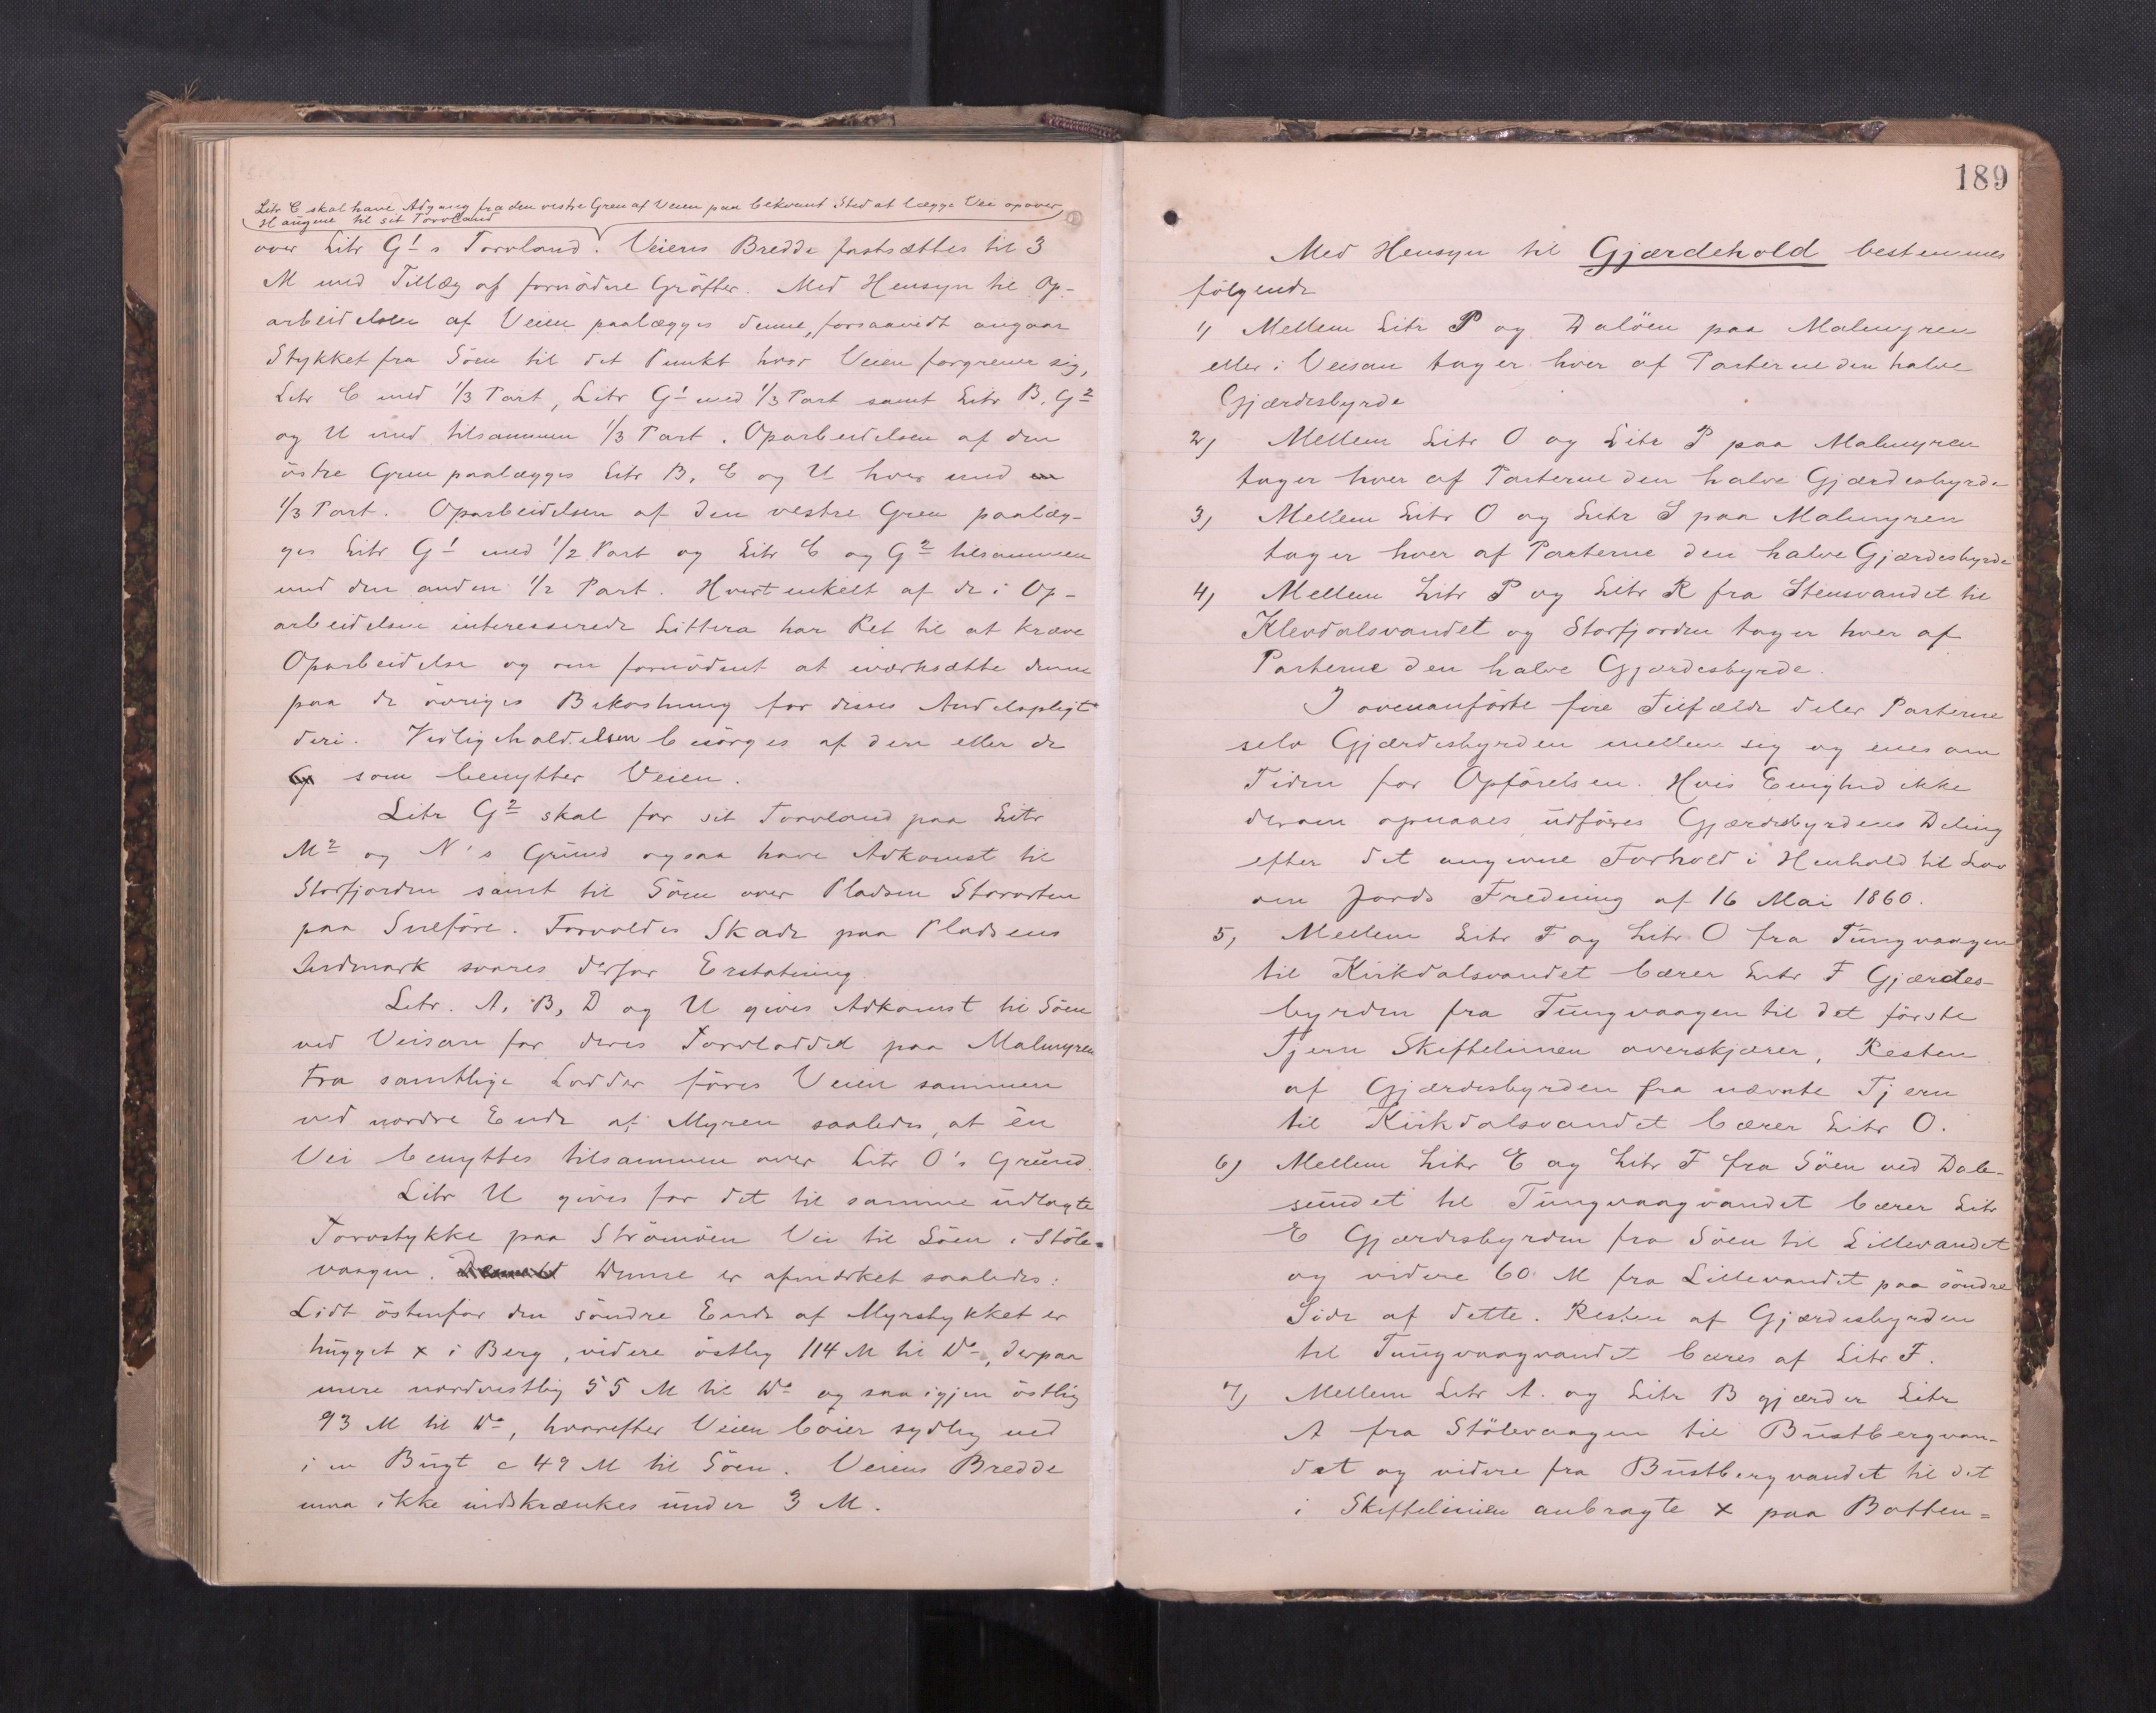 Litr C skal have Adgang fra den vestre Gren af Veien paa bekvemt Sted at lægge Vei opover
Haugene til sit Torvland
over Litr G1s Torvland. Veiens Bredde fastsættes til 3
M med Tillæg af fornödne Gröfter. Med Hensyn til Op-
arbeidelsen af Veien paalægges denne, forsaavidt angaar
Stykket fra Söen til det Punkt hvor Veien forgrener sig,
Litr C med 1/3 Part, Litr G1 med 1/3 Part samt Litr B, G2
og U med tilsammen 1/3 Part. Oparbeidelsen af den
östre Gren paalægges Litr B, C og U hver med en
1/3 Part. Oparbeidelsen af den vestre Gren paalæg-
ges Litr G1 med 1/2 Part og Litr C og G2 tilsammen
med den anden 1/2 Part. Hvert enkelt af de i Op-
arbeidelsen interesserede Littera har Ret til at kræve
Oparbeidelse og om fornödent at iværksætte denne
paa de övriges Bekostning for disses Andelspligt
deri. Vedligeholdelsen besörges af den eller de
som benytter Veien.
Litr G2 skal for sit Torvland paa Litr
M2 og N's Grund ogsaa have Adkomst til
Storfjorden samt til Söen over Pladsen
paa Sneföre. Forvoldes Skade paa Pladsens
Indmark svares derfor Erstatning.
Litr. A, B, D og U gives Adkomst til Söen
ved Veisan for deres Torvlodder paa Malmyren
Fra samtlige Lodder föres Veien sammen
ved nordre Ende af Myren saaledes, at én
Vei benyttes tilsammen over Litr O's Grund.
Litr U gives for det til samme udlagte
Torvstykke paa Strömöen Vei til Söen i Stöle-
vaagen. Denne er afmærket saaledes:
Lidt östenfor den söndre Ende af Myrstykket er
hugget x i Berg, videre östlig 114 M til Do, derpaa
mere nordvestlig 55 M til Do og saa igjen östlig
93 M til Do, hvorefter Veien böier sydlig ned
i en Bugt c 49 M til Söen. Veiens Bredde
maa ikke indskrænkes under 3 M.
189
Med Hensyn til Gjærdehold bestemmes
fölgende
1) Mellem Litr P og Dalöen paa Malmyren
eller i Veisan tager hver af Parterne den halve
Gjærdesbyrde
2) Mellem Litr O og Litr P paa Malmyren
tager hver af Parterne den halve Gjærdesbyrde
3) Mellem Litr O og Litr S paa Malmyren
tager hver af Parterne den halve Gjærdesbyrde
4) Mellem Litr P og Litr R fra Stensvandet til
Klevdalsvandet og Storfjorden tager hver af
Parterne den halve Gjærdesbyrde.
I ovenanförte fire Tilfælde deler Parterne
selv Gjærdesbyrden mellem sig og enes om
Tiden for Opförelsen. Hvis Enighed ikke
derom opnaaes, udföres Gjærdesbyrdens Deling
efter det angivne Forhold i Henhold til Lov
om Jords Fredning af 16 Mai 1860.
5) Mellem Litr F og Litr O fra Tungvaagen
til Kirkdalsvandet bærer Litr F Gjærdes-
byrden fra Tungvaagen til det förste
Tjern Skiftelinien overskjærer, Resten
af Gjærdesbyrden fra nævnte Tjern
til Kirkdalsvandet bærer Litr O.
6) Mellem Litr E og Litr F fra Söen ved Dale-
sundet til Tungvaagvandet bærer Litr
E Gjærdesbyrden fra Söen til Lillevandet
og videre 60 M fra Lillevandet paa söndre
Side af dette. Resten af Gjærdesbyrden
til Tungvaagvandet bæres af Litr F.
7) Mellem Litr A. og Litr B gjærder Litr
A fra Stölevaagen til Bustbergvan-
det og videre fra Bustbergvandet til det
i Skiftelinien anbragte x paa Botten=